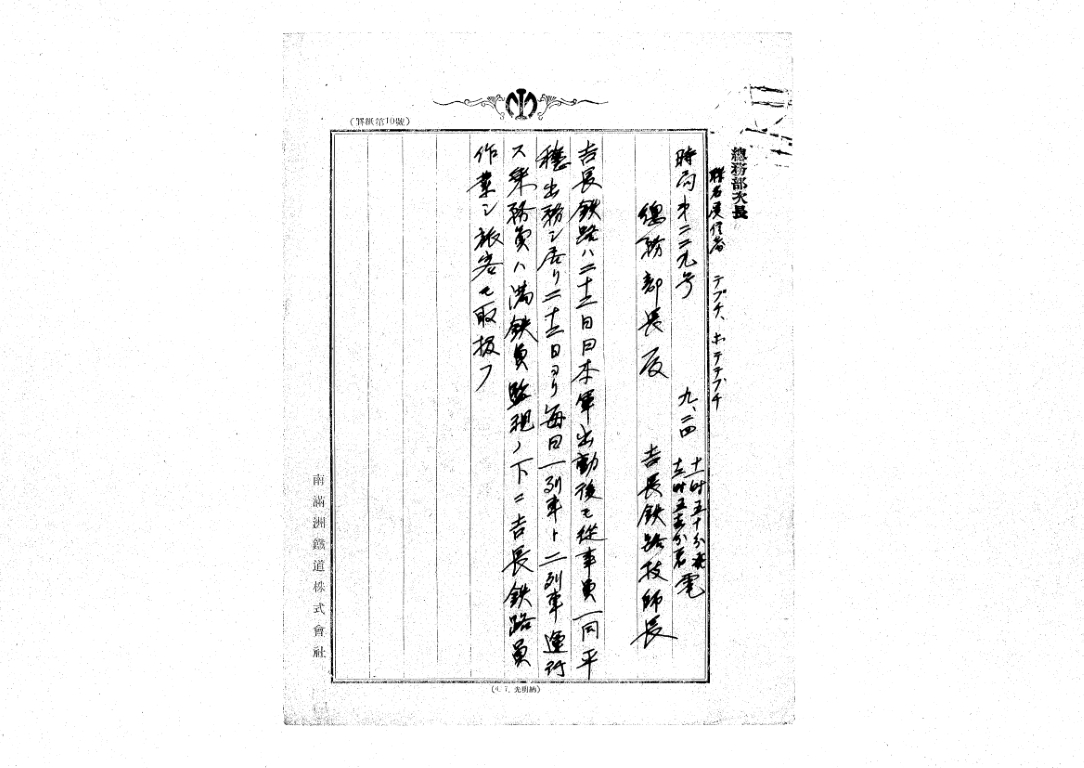 (罫紙第10號)
總務部次長
テプチ、ホテテプチ
時局第二二九号
九、二四
十一時五十分発
十一時五五分着 電
總務部長殿
吉長鉄路技師長
吉長鉄路ハ二十三日日本軍出動後モ従事員一同平
穏出務シ居リ二十三日ヨリ毎日一列車ト二列車運行
ス乗務員ハ満鉄員監視ノ下ニ吉長鉄路員
作業シ旅客モ取扱フ
南滿洲鐵道株式會社